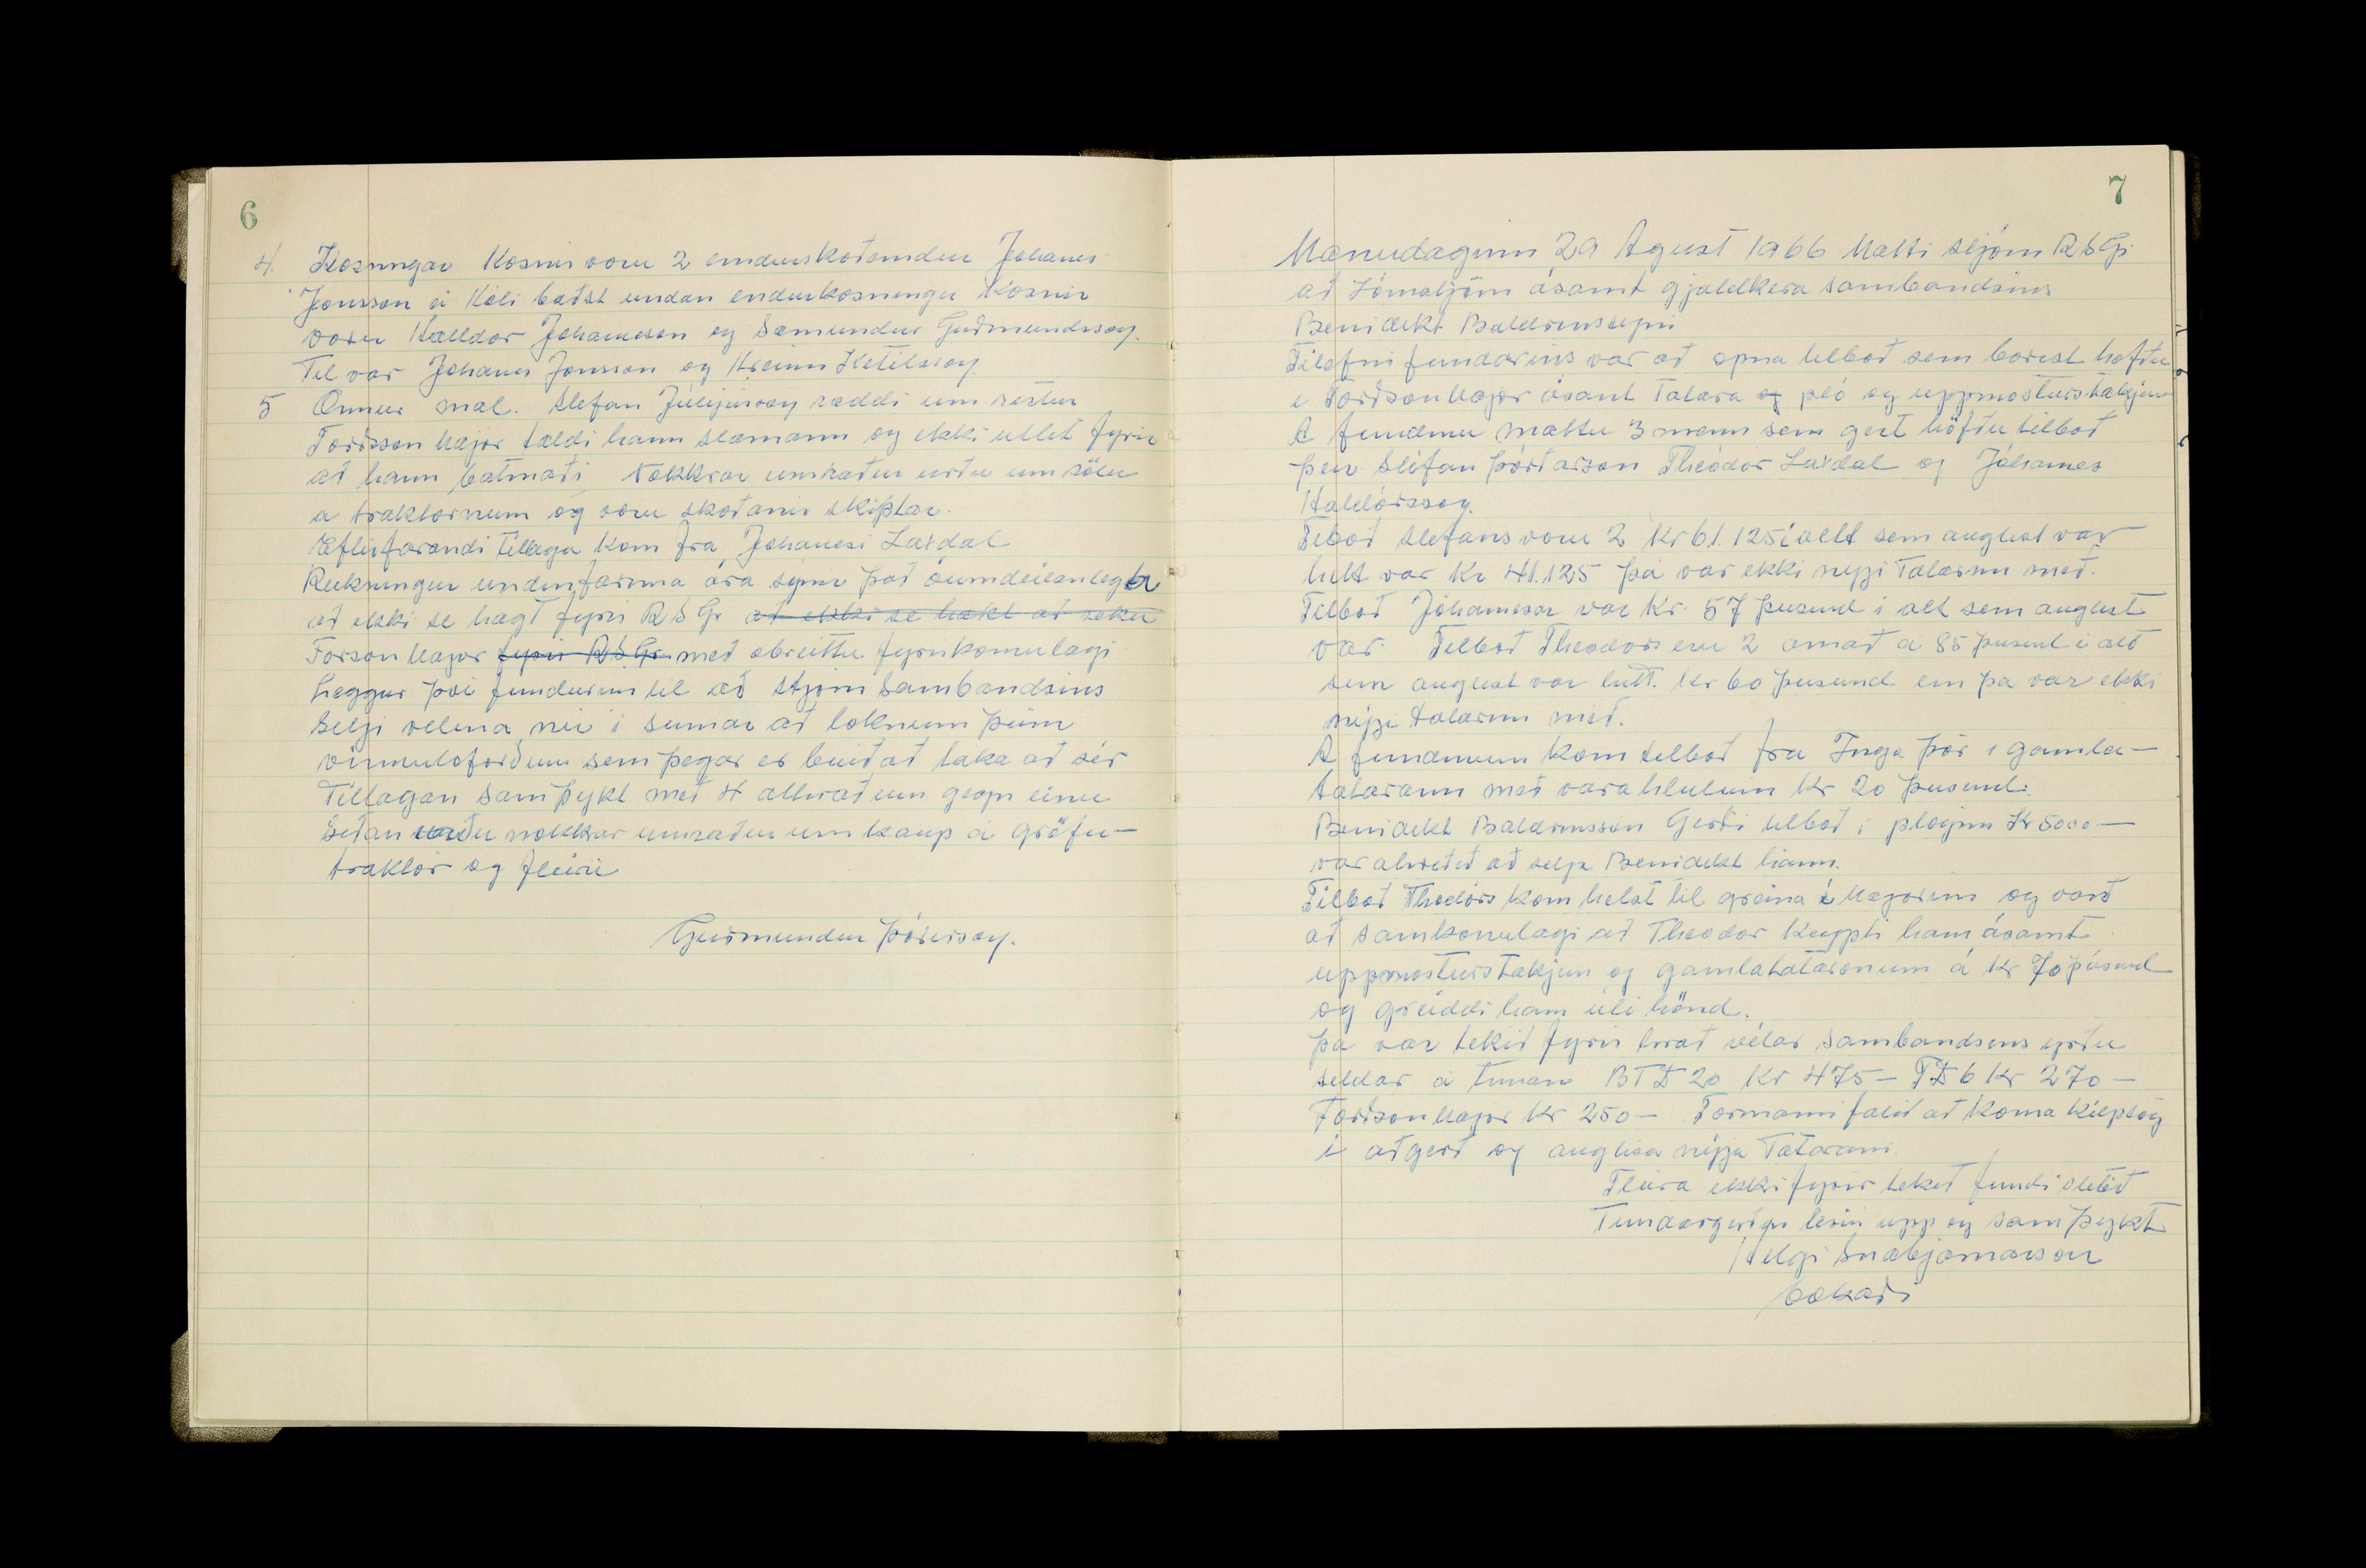 6
4. Kosningar Kosnir voru 2 endurskoðendur Johanes
Jonsson á Hóli baðst undan endurkosningu Kosnir
voru Halldor Johanesson og Sæmundur Guðmundsson.
Til var Johanes Jonsson og Hreinn Ketilsson
5 Önnur mal. Stefan Júlijusson ræddi um restur
Fordson Major taldi hann slæmann og ekki utlit fyrir
að hann batnaði Nokkrar umræður urðu um sölu
a traktornum og voru skoðanir skiptar.
Eftirfarandi tillaga kom fra Johanesi Laxdal
Reksningur undanfarinna ára synir það óumdeilanlega
að ekki se hagt fyrir R S G. að ekki se hækt að reka
Forson Major fyrir RSG. með obreittu fyrirkomulagi
Leggur því fundurinn til að stjorn Sambandsins
selji velina nu i sumar að loknum þeim
vinnuloforðum sem þegar er buið að taka að sér
Tillagan samþykt með 4 atkvæðum gegn einu
Seðan urðu nokkrar umræður um kaup á gröfu-
traktor og fleiru
Guðmundur Þórisson.
7
Manudaginn 29 Agust 1966 Mætti stjórn R S G.
að Lómatjörn ásamt gjaldkera sambandsins
Benidekt Baldvinssyni
Tilefni fundarins var að opna tilboð sem borist hofðu
i Fordson Major ásamt Tætara og pló og uppmoksturstækjum
A fundinn mættu 3 menn sem gert höfðu tilboð
þeir Stéfan Þórðarson Theódór Laxdal og Jóhannes
Halldórsson.
Tilboð Stefans voru 2 Kr 61.125 i allt sem auglyst var
hitt var Kr 41.125 þá var ekki nyji Tætarinn með.
Tilboð Jóhannesar var Kr. 57 þusund i alt sem auglyst
var Tilboð Theodors eru 2 annað á 85 þusund i alt
sem auglyst var hitt. Kr 60 þusund en þa var ekki
nýji tætarinn með.
A fundinum kom tilboð fra Inga Þór i gamla-
tætarann með varahlutum Kr 20 þusund.
Benidekt Baldvinsson Gerði tilboð i plóginn Kr 5000-
var akveðið að selja Benidekt hann.
Tilboð Theodórs kom helst til greina i Majorinn og varð
að samkomulagi að Theodor Keypti hann ásamt
uppmoksturstækjum og gamlatætaranum á Kr 70 þúsund
og greiddi hann úti hönd.
Þa var tekið fyrir hvað vélar Sambandsins yrðu
seldar á timan BTD 20 Kr 475- TD 6 Kr 270-
Fordson Major Kr 250- Formanni falið að Koma Kílplóg
i aðgerð og auglysa nýja Tætarann.
Fleira ekki fyrir tekið fundi slitið
Fundargerðin lesin upp og samþykt
Helgi Snæbjarnarson
bókaði